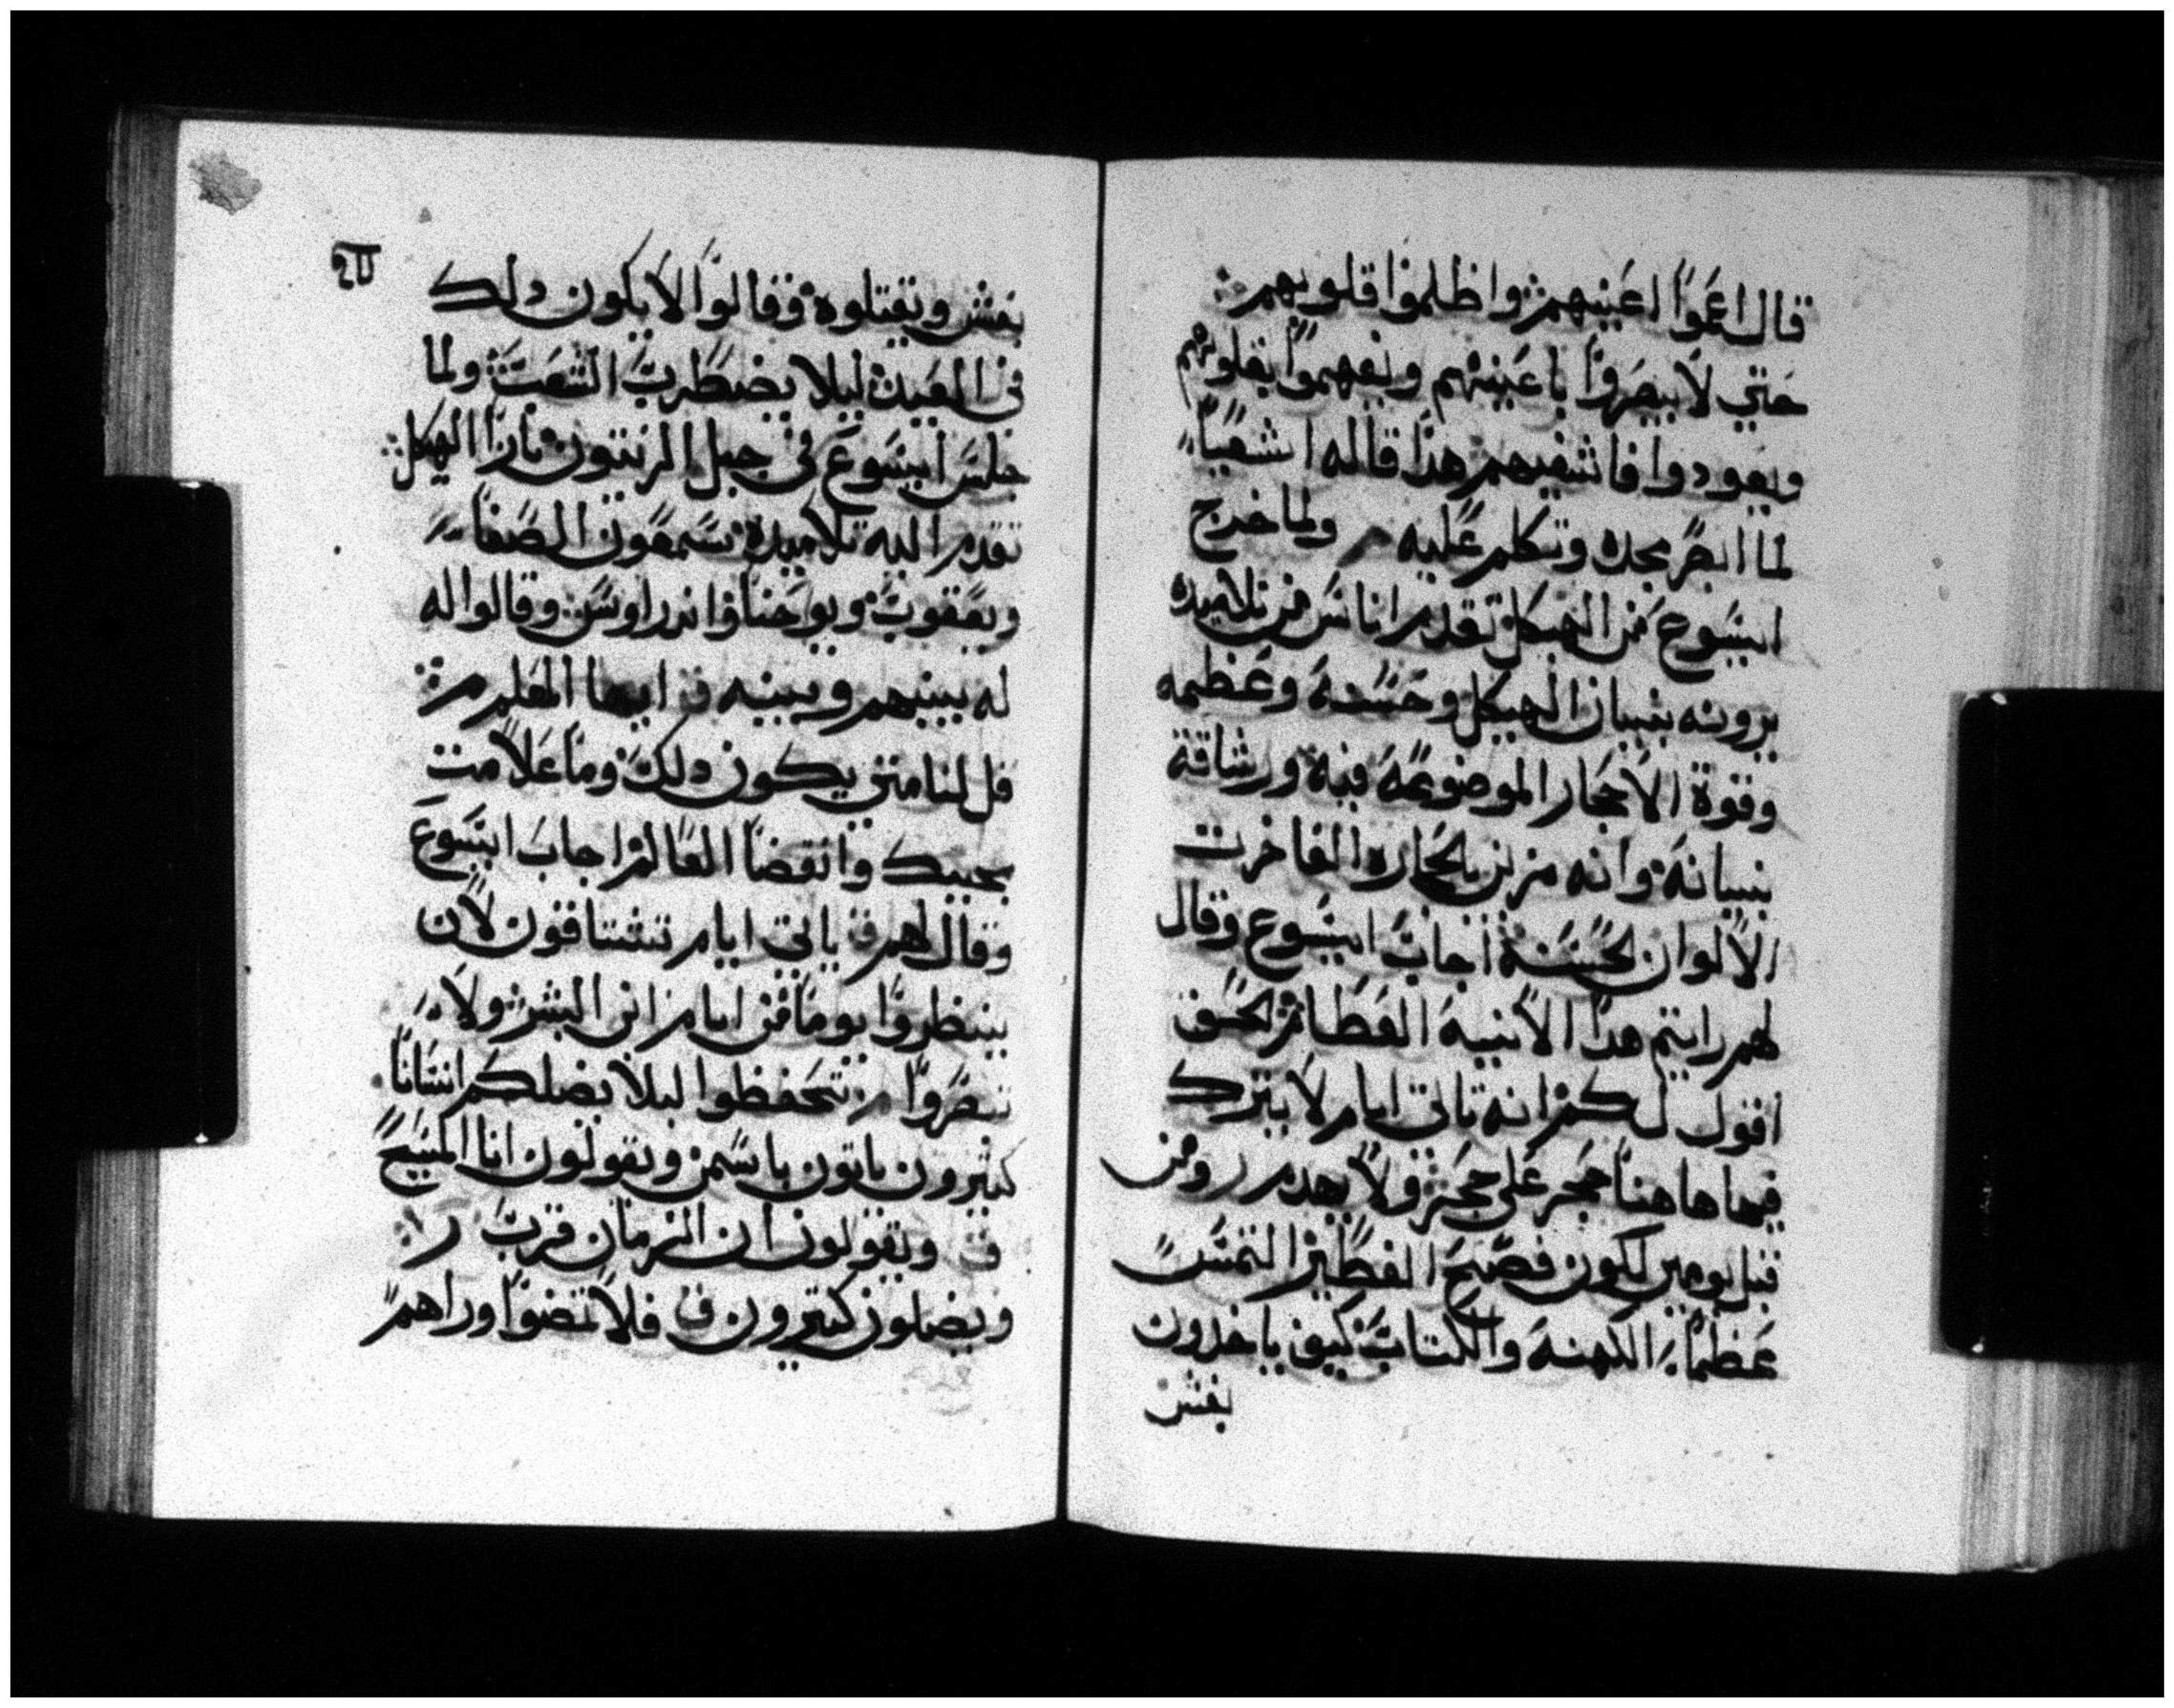 قال اعموا اعينهم واظلموا قلوبهم
حتي لا يبصروا باعينهم ويفهموا بقلوبهم
ويعودوا فاشفيهم هذا قاله اشعيا
لما ابصر مجده وتكلم عليه ولما خرج
ايسوع من الهيكل تقدم اناس من تلاميده
يرونه بنيان الهيكل وحسنه وعظمه
وقوة الاحجار الموضوعه فيه ورشاقة
بنيانه وانه مزين بالحجاره الفاخرت
الالوان الحسنة اجاب ايسوع وقال
لهم رايتم هدا الابنيه العظائم الحق
اقول لكم انه تاتي ايام لا يترك
فيها هاهنا حجر علي حجر ولا يهدم ومن
قبل يومين لكون فصح الفطير التمس
عظماء الكهنه والكتاب كيف ياخدون
بغش
بغش ويقتلوه وقالوا لا يكون دلك
في العيد ليلا يضطرب الشعب ولما
جلس ايسوع في جبل الزيتون بازا الهيكل
تقدم اليه تلاميده سمعون الصفا
ويعقوب ويوحنا واندراوس وقالوا له
له بينهم وبينه ايها المعلم
قل لنا متي يكون دلك وما علامت
مجييك وانقضا العالم اجاب ايسوع
وقال لهم ياتي ايام تشتاقون لان
ينظروا يوما من ايام ابن البشر ولا
تنضروا تحفظوا ليلا يضلكم انسانا
كثيرون ياتون باسمي ويقولون انا المسيح
ويقولون ان الزمان قرب
ويضلون كثيرون فلا تمضوا وراهم